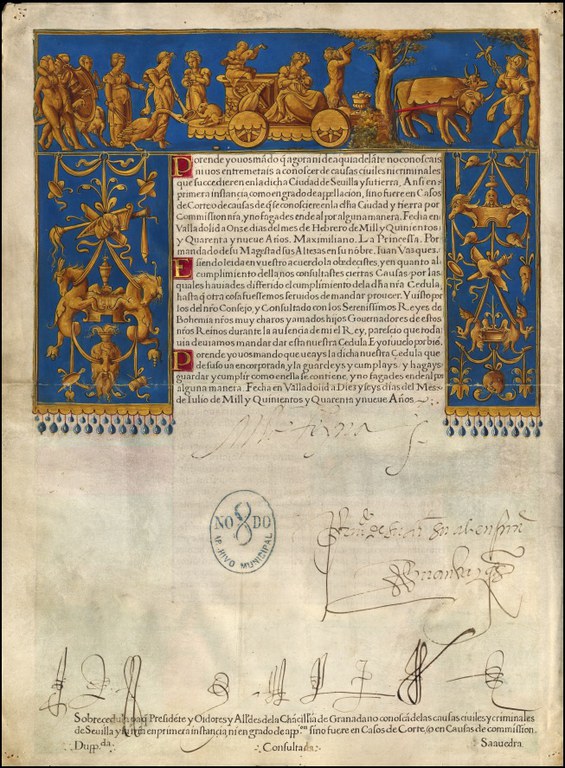 Porende yo uos mãdo q̃ agora ni de aqui adelãte no conoscais
ni uos entremetais a conoscer de causas ciuiles ni criminales
que succedieren en la dicha Ciudad de Seuilla y su tierra. Ansi en
primera instancia como en grado de apelacion, sino fuere en Casos
de Corte o de causas de q̃ se conosciere en la dha Ciudad y tierra por
Commission nr̃a, y no fagades ende al por alguna manera. Fecha en
Valladolid a Onze dias del mes de Hebrero de Mill y Quinientos
y Quarenta y nueue Años. Maximiliano. La Princessa. Por
mandado de su Magestad sus Altezas en su nõbre. Juan Vazquez.
E siendo les dada en vuestro acuerdo la obedecistes, y en quanto al
cumplimiento della nos consultastes ciertas Causas por las
quales hauiades differido el cumplimiento de la dha nr̃a Cedula,
hasta q̃ otra cosa fuessemos seruidos de mandar proueer. Y uisto por
los del nr̃o Consejo, y Consultado con los Serenissimos Reyes de
Bohemia nr̃os muy charos y amados hijos Gouernadores de estos
nr̃os Reinos durante la ausencia de mi el Rey, parescio que toda
uia deuiamos mandar dar esta nuestra Cedula E yo tuuelo por biẽ.
Porende yo uos mando que ueays la dicha nuestra Cedula que
de suso ua encorporada, y la guardeys y cumplays y hagays
guardar y cumplir como en ella se contiene, y no fagades ende al por
alguna manera. Fecha en Valladolid a Diez y seys dias del Mes
de Iulio de Mill y Quinientos y Quarenta y nueue Años.
NO 8 DO
MUNICIPAL
Sobrecedula para Presidẽte y Oidores y Alldes de la Chãcillia de Granada no conoscã de las causas ciuiles y criminales
de Seuilla y su trr̃a en primera instancia ni en grado de app.on sino fuere en Casos de Corte, o en Causas de commission.
Dupp.da
Consultada
Saauedra